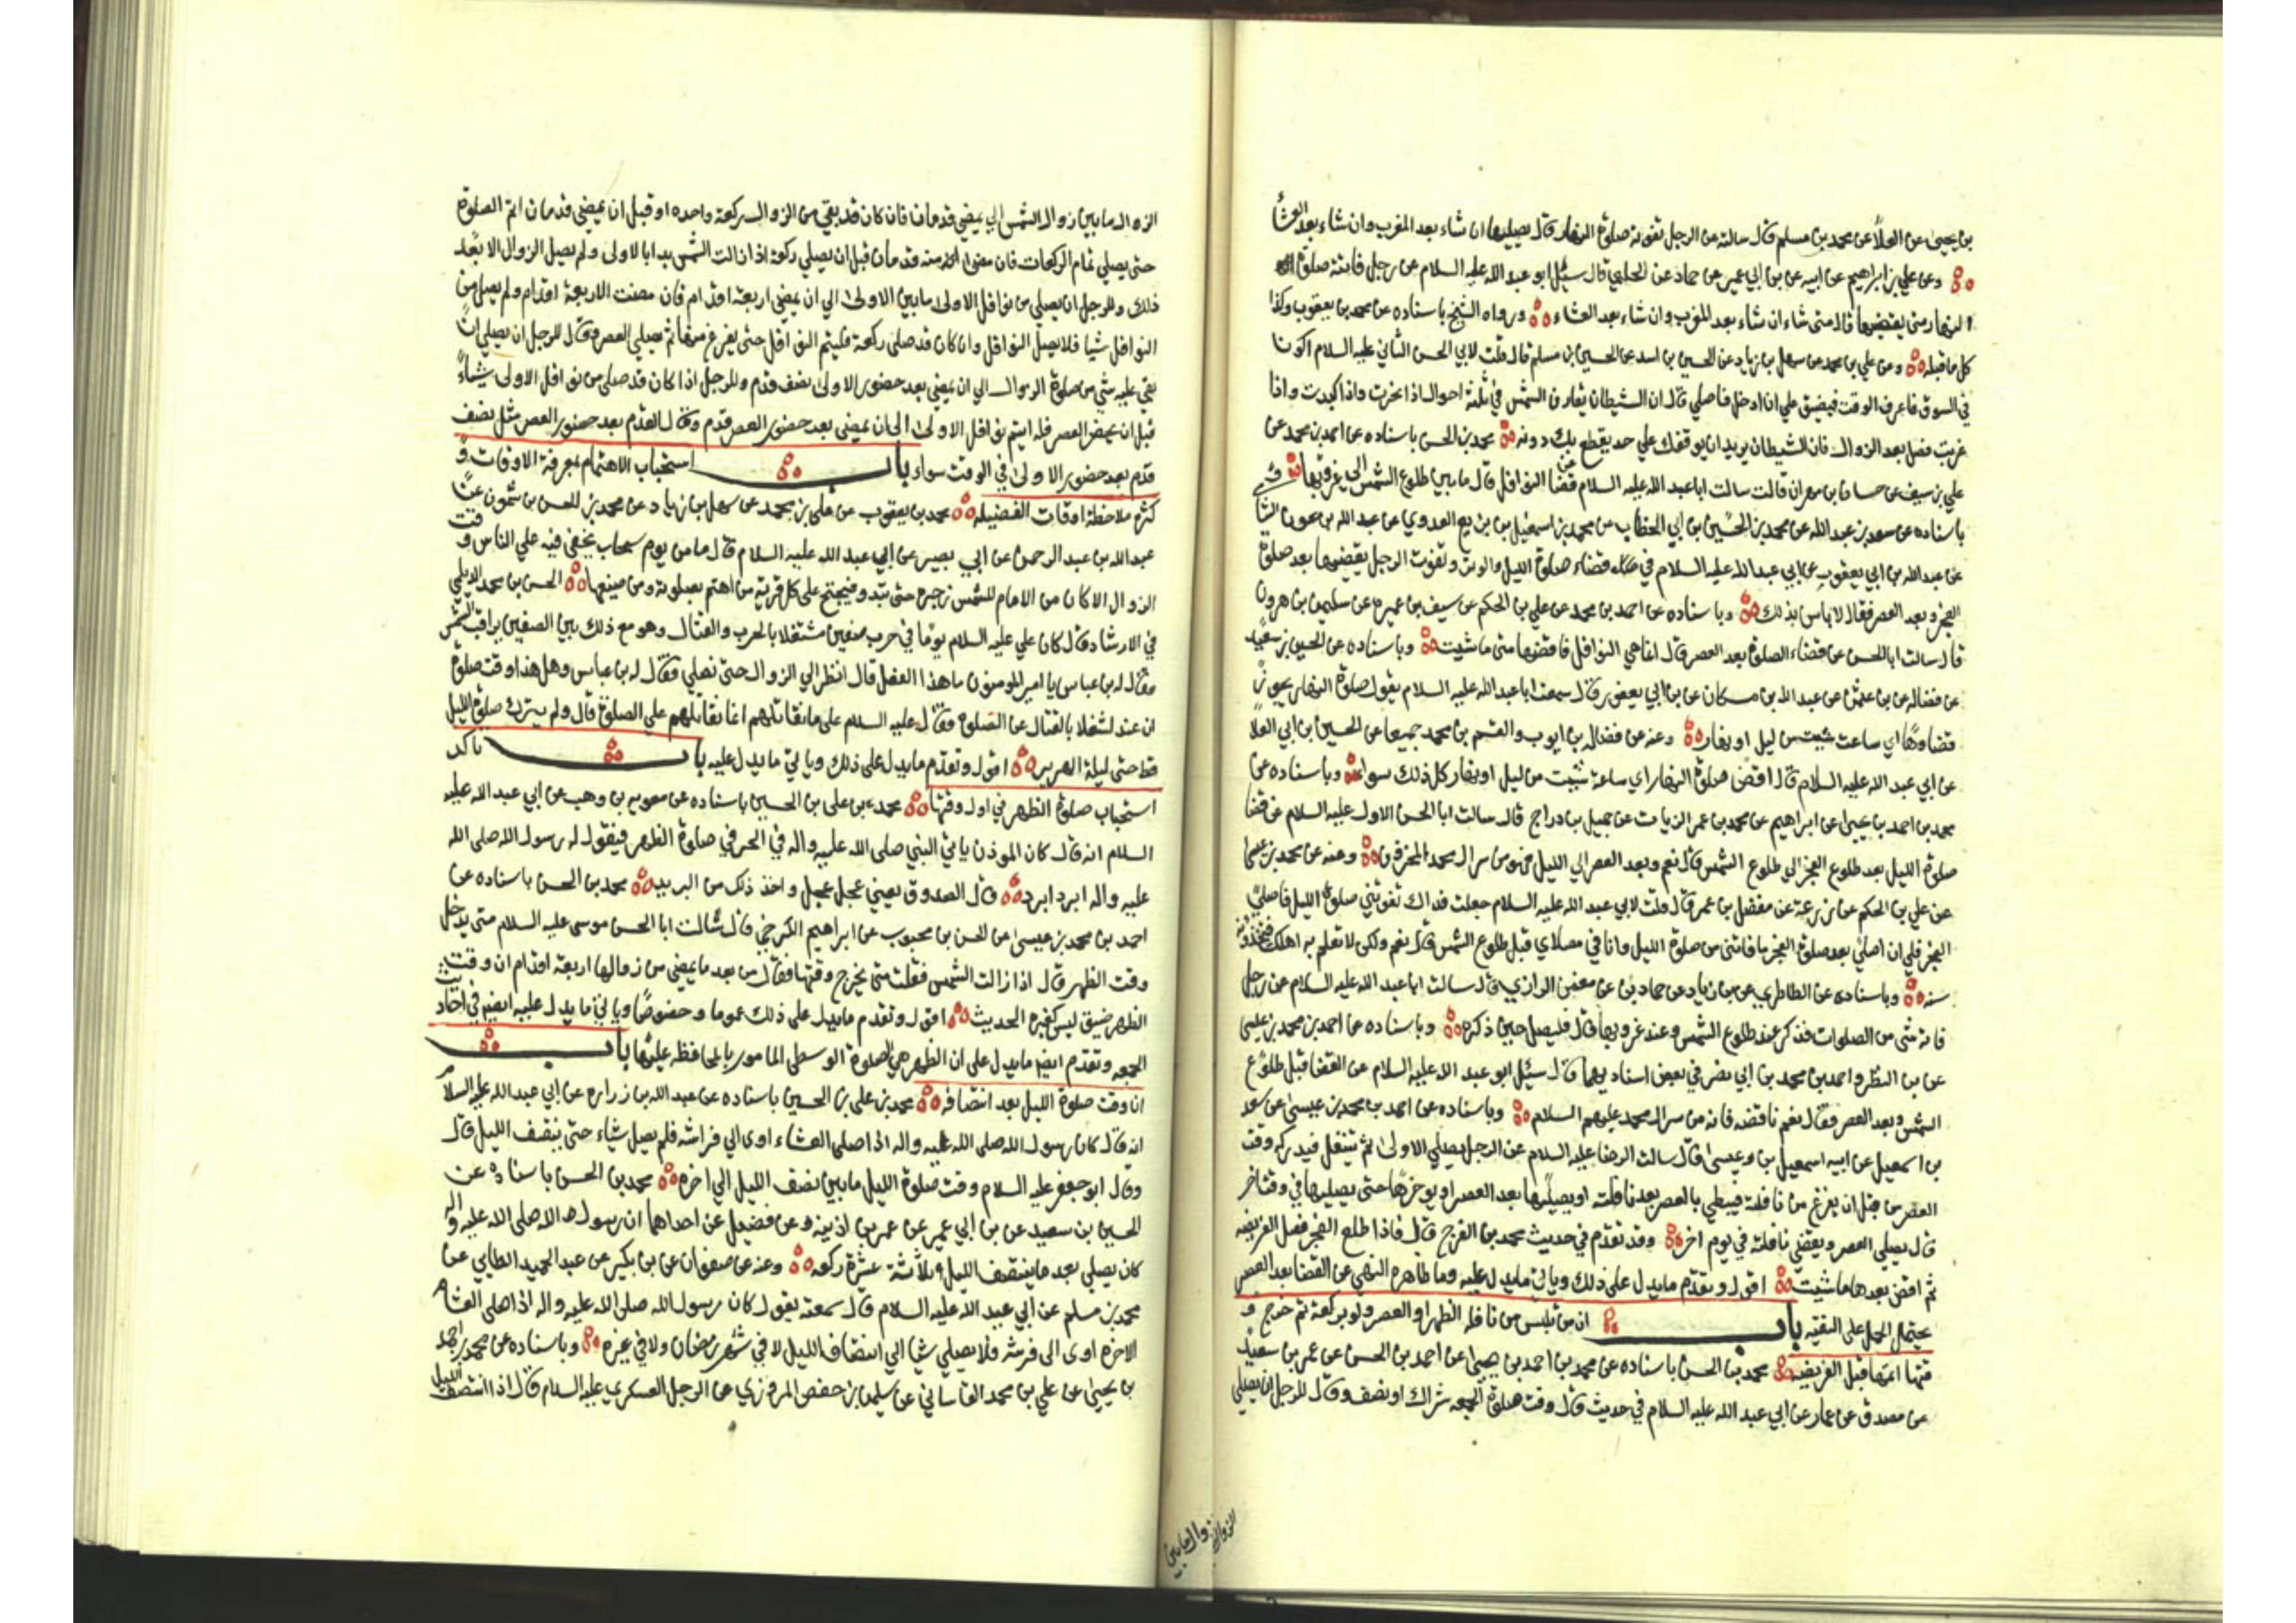 بن يحيى عن العلا عن محمد بن مسلم قال سالته عن الرجل تفوته صلوة النهار قال يصليها ان شاء بعد المغرب وان شاء بعد العشا
وعن علي بن ابراهيم عن ابيه عن بن ابي عمير عن حماد عن الحلبي قال سئل ابو عبد الله عليه السلام عن رجل فاتته صلوة
النهار متى يقضيها قال متى شاء ان شاء بعد المغرب وان شاء بعد العشاء ورواه الشيخ باسناده عن محمد بن يعقوب وكذا
كل ما قبله وعن علي بن محمد عن سهل بن زياد عن الحسين بن اسد عن الحسين بن مسلم قال قلت لابي الحسن الثاني عليه السلام اكون
في السوق فاعرف الوقت فيضيق علي ان ادخل فاصلي قال ان الشيطان يقارن الشمس في ثلثة احوال اذا انحرت واذا كبدت واذا
غربت فصل بعد الزوال فان الشيطان يريد ان يوقفك على حد يقطع بك دونه محمد بن الحسن باسناده عن احمد بن محمد عن
علي بن سيف عن حسان بن مهران قالت سالت ابا عبد الله عليه السلام عن قضا النوافل قال ما بين طلوع الشمس الى غروبها و
باسناده عن سعد بن عبد الله عن محمد بن الحسين بن ابي الخطاب عن محمد بن اسمعيل بن بزيع العدوي عن عبد الله بن عون الشا
عن عبد الله بن ابي يعقوب عن ابي عبد الله عليه السلام في قضاء صلوة الليل والوتر وتفوت الرجل يقضيها بعد صلوة
الفجر وبعد العصر فقال لا باس بذلك وباسناده عن احمد بن محمد عن علي بن الحكم عن سيف بن عميره عن سليمن بن هرون
قال سالت ابا الحسن عن قضاء الصلوة بعد العصر قال انما هي النوافل فاقضها متى ما شيت وباسناده عن الحسين بن سعيد
عن فضاله عن بن عثمن عن عبد الله بن مسكان عن بن ابي يعفور قال سمعت ابا عبد الله عليه السلام يقول صلوة النهار يجوز
قضاوها اي ساعت شيت من ليل او نهار وعنه عن فضاله بن ايوب والقسم بن محمد جميعا عن الحسين بن ابي العلا
عن ابي عبد الله عليه السلام قال اقض صلوة النهار اي ساعة شيت من ليل او نهار كل ذلك سوا وباسناده عن
محمد بن احمد بن يحيى عن ابراهيم عن محمد بن عمر الزيات عن جميل بن دراج قال سالت ابا الحسن الاول عليه السلام عن قضا
صلوة الليل بعد طلوع الفجر الى طلوع الشمس قال نعم وبعد العصر الى الليل فهو من سر ال محمد المخزون وعنه عن محمد بن عيسى
عن علي بن الحكم عن بن زرعة عن مفضل بن عمر قال قلت لابي عبد الله عليه السلام جعلت فداك تفوتني صلوة الليل فاصلي
الفجر فلي ان اصلي بعد صلوة الفجر ما فاتني من صلوة الليل وانا في مصلاي قبل طلوع الشمس قال نعم ولكن لا تعلم به اهلك فتتخذونه
سنه وباسناده عن الطاطري عن بن زياد عن حماد بن عن معن الرازي قال سالت ابا عبد الله عليه السلام عن رجل
فاته شي من الصلوات فذكر عند طلوع الشمس وعند غروبها قال فليصل حين ذكره وباسناده عن احمد بن محمد بن عيسى
عن بن النظر واحمد بن محمد بن ابي نصر في بعض اسناديهما قال سئل ابو عبد الله عليه السلام عن القضا قبل طلوع
الشمس وبعد العصر فقال نعم فاقضه فانه من سر ال محمد عليهم السلام وباسناده عن احمد بن محمد بن عيسى عن سعد
بن اسمعيل عن ابيه اسمعيل بن عيسى قال سالت الرضا عليه السلام عن الرجل يصلي الاولى ثم يتنفل فيدركه وقت
العصر من قبل ان يفرغ من نافلة فيبطي بالعصر بعد نافلته او يصليها بعد العصر او يوخرها حتى يصليها في وقت اخر
قال يصلي العصر ويقضي نافلته في يوم اخر وقد تقدم في حديث محمد بن الفرج قال فاذا طلع الفجر فصل الفريضه
ثم اقض بعدها ما شيت اقول وتقدم ما يدل على ذلك وياتي ما يدل عليه وما ظاهره النهي عن القضا بعد العصر
يحتمل الحمل على التقيه باب ان من تلبس من نافلة الظهر او العصر ولو بركعة ثم خرج و
قتها اتمها قبل الفريضه محمد بن الحسن باسناده عن محمد بن احمد بن يحيى عن احمد بن الحسن عن عمر بن سعيد
عن مصدق عن عمار عن ابي عبد الله عليه السلام في حديث قال وقت صلوة الجمعه شراك او نصف وقال للرجل ان يصلي
الزوال ما بين زوال الشمس الي يمضي قدمان فان كان قد بقي من الزوال ركعة واحده او قبل ان يمضي قدمان اتم الصلوة
حتى يصلي تمام الركعات فان مضى قدمان قبل ان يصلي ركعة اذا زالت الشمس بدا بالاولى ولم يصل الزوال الا بعد
ذلك وللرجل ان يصلي من نوافل الاولى ما بين الاولى الي ان يمضي اربعة اقدام فان مضت الاربعة اقدام ولم يصل من
النوافل شيا فلا يصل النوافل وان كان قد صلى ركعة فليتم النوافل حتى يفرغ منها ثم يصلي العصر وقال للرجل ان يصلي ان
بقي عليه شي من صلوة الزوال الي ان يمضي بعد حضور الاولى نصف قدم وللرجل اذا كان قد صلى من نوافل الاولى شيئاً
قبل ان يحضر العصر فله ان يتم نوافل الاولى الى ان يمضي بعد حضور العصر قدم وقال القدم بعد حضور العصر مثل نصف
قدم بعد حضور الاولى في الوقت سواء باب استحباب الاهتمام بمعرفة الاوقات و
كثرة ملاحظة اوقات الفضيله محمد بن يعقوب عن علي بن محمد عن سهل بن زياد عن محمد بن الحسن بن شمون عن
عبد الله بن عبد الرحمن عن ابي بصير عن ابي عبد الله عليه السلام قال ما من يوم سحاب يخفي فيه علي الناس وقت
الزوال الا كان من الامام للشمس زجره حتى تبدو فيحتج على كل قرية من اهتم بصلوته ومن ضيعها الحسن بن محمد الديلمي
في الارشاد قال كان علي عليه السلام يوما في حرب صفين مشتغلا بالحرب والقتال وهو مع ذلك بين الصفين يراقب الشمس
فقال له بن عباس يا امير المومنون ما هذا الفعل قال انظر الي الزوال حتى نصلي فقال له بن عباس وهل هذا وقت صلوة
ان عند لشغلا بالقتال عن الصلوة فقال عليه السلام على ما نقاتلهم انما نقاتلهم علي الصلوة قال ولم يترك صلوة الليل
قط حتى ليلة الهرير اقول وتقدم ما يدل على ذلك وياتي ما يدل عليه باب تاكد
استحباب صلوة الظهر في اول وقتها محمد بن علي بن الحسين باسناده عن معويه بن وهب عن ابي عبد الله عليه
السلام انه قال كان الموذن ياتي النبي صلى الله عليه واله في الحر في صلوة الظهر فيقول له رسول الله صلى الله
عليه واله ابرد ابرد قال الصدوق يعني عجل عجل واخذ ذلك من البريد محمد بن الحسن باسناده عن
احمد بن محمد بن عيسى عن الحسن بن محبوب عن ابراهيم الكرخي قال سالت ابا الحسن موسى عليه السلام متى يدخل
وقت الظهر قال اذا زالت الشمس فقلت متى يخرج وقتها فقال من بعد ما يمضي من زوالها اربعة اقدام ان وقت
الظهر ضيق ليس كغيره الحديث اقول وتقدم ما يدل على ذلك عموما وخصوصا وياتي ما يدل عليه ايضا في احاديث
الجمعه وتقدم ايضا ما يدل على ان الظهر هي الصلوة الوسطى المامور بالمحافظه عليها باب
ان وقت صلوة الليل بعد انتصافه محمد بن علي بن الحسين باسناده عن عبد الله بن زراره عن ابي عبد الله عليه السلام
انه قال كان رسول الله صلى الله عليه واله اذا صلى العشاء اوى الي فراشه فلم يصل شياء حتى ينتصف الليل قال
وقال ابو جعفر عليه السلام وقت صلوة الليل ما بين نصف الليل الي اخره محمد بن الحسن باسناده عن
الحسين بن سعيد عن بن ابي عمير عن عمر بن اذينه وعن فضيل عن احداهما ان رسول الله صلى الله عليه واله
كان يصلي بعد ما ينتصف الليل ثلاثة عشرة ركعه وعنه عن صفوان عن بن بكير عن عبد الحميد الطايي عن
محمد بن مسلم عن ابي عبد الله عليه السلام قال سمعته يقول كان رسول الله صلى الله عليه واله اذا صلى العشا
الاخره اوى الى فرشه فلا يصلي شيا الي انتصاف الليل لا في شهر رمضان ولا في غيره وباسناده عن محمد بن احمد
بن يحيى عن علي بن محمد القاساني عن سليمان بن حفص المروزي عن الرجل العسكري عليه السلام قال اذا انتصف الليل
الزوال زوال ما بين